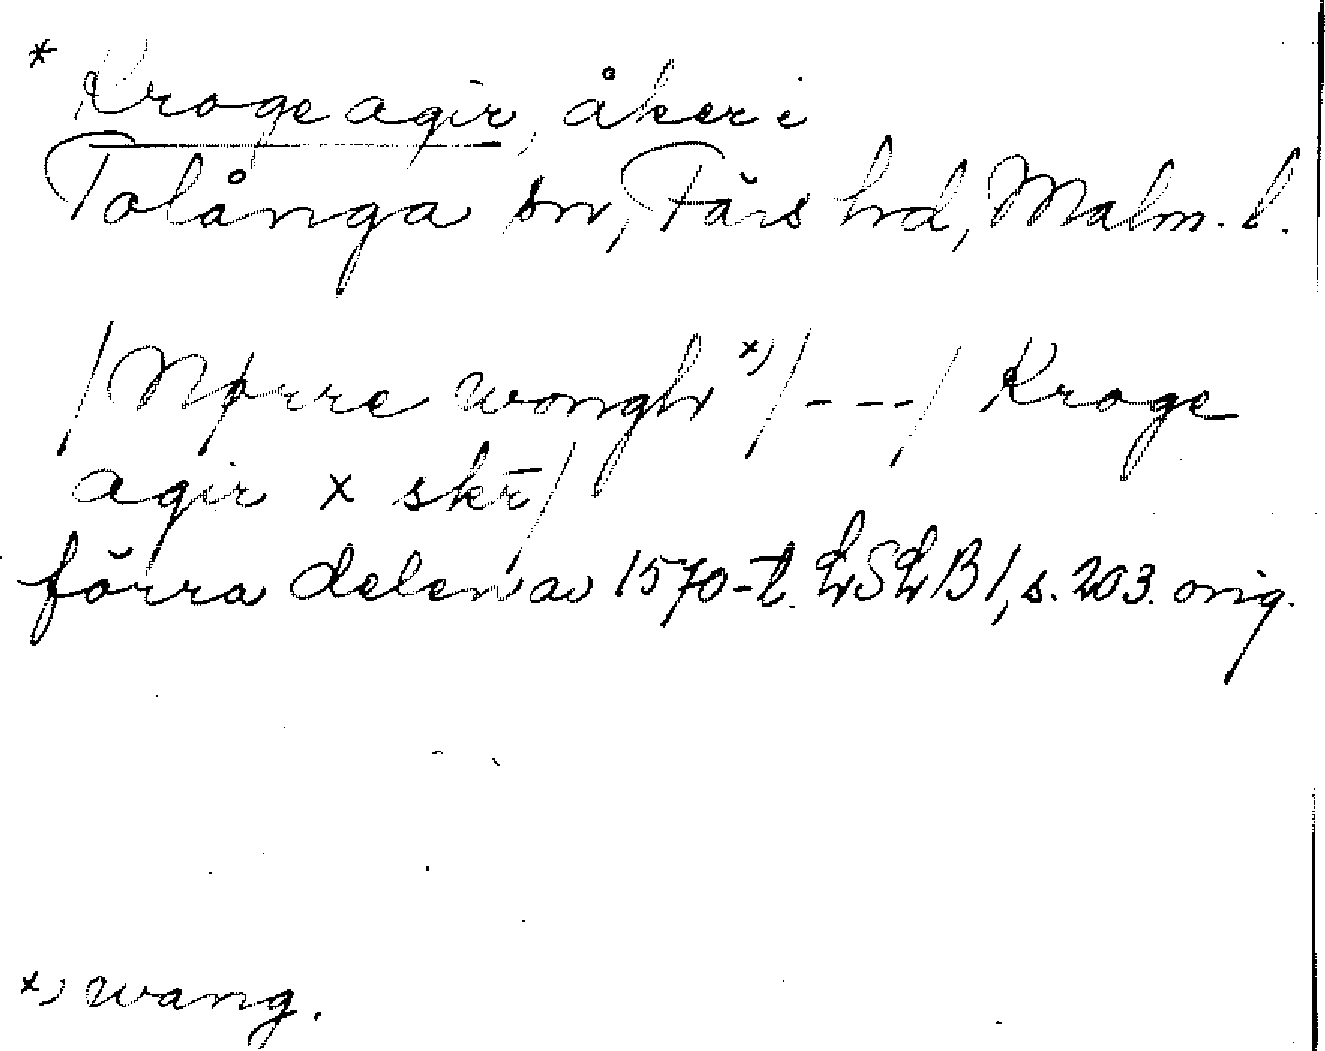 * Kroge agir, åker i
Tolånga sn, Färs hd, Malm. l.
/Nørre wongh x)/ - - - / Kroge
agir x skr̄/
förra delen av 1570-t. LSLB 1, s. 203. orig.
x) wang.